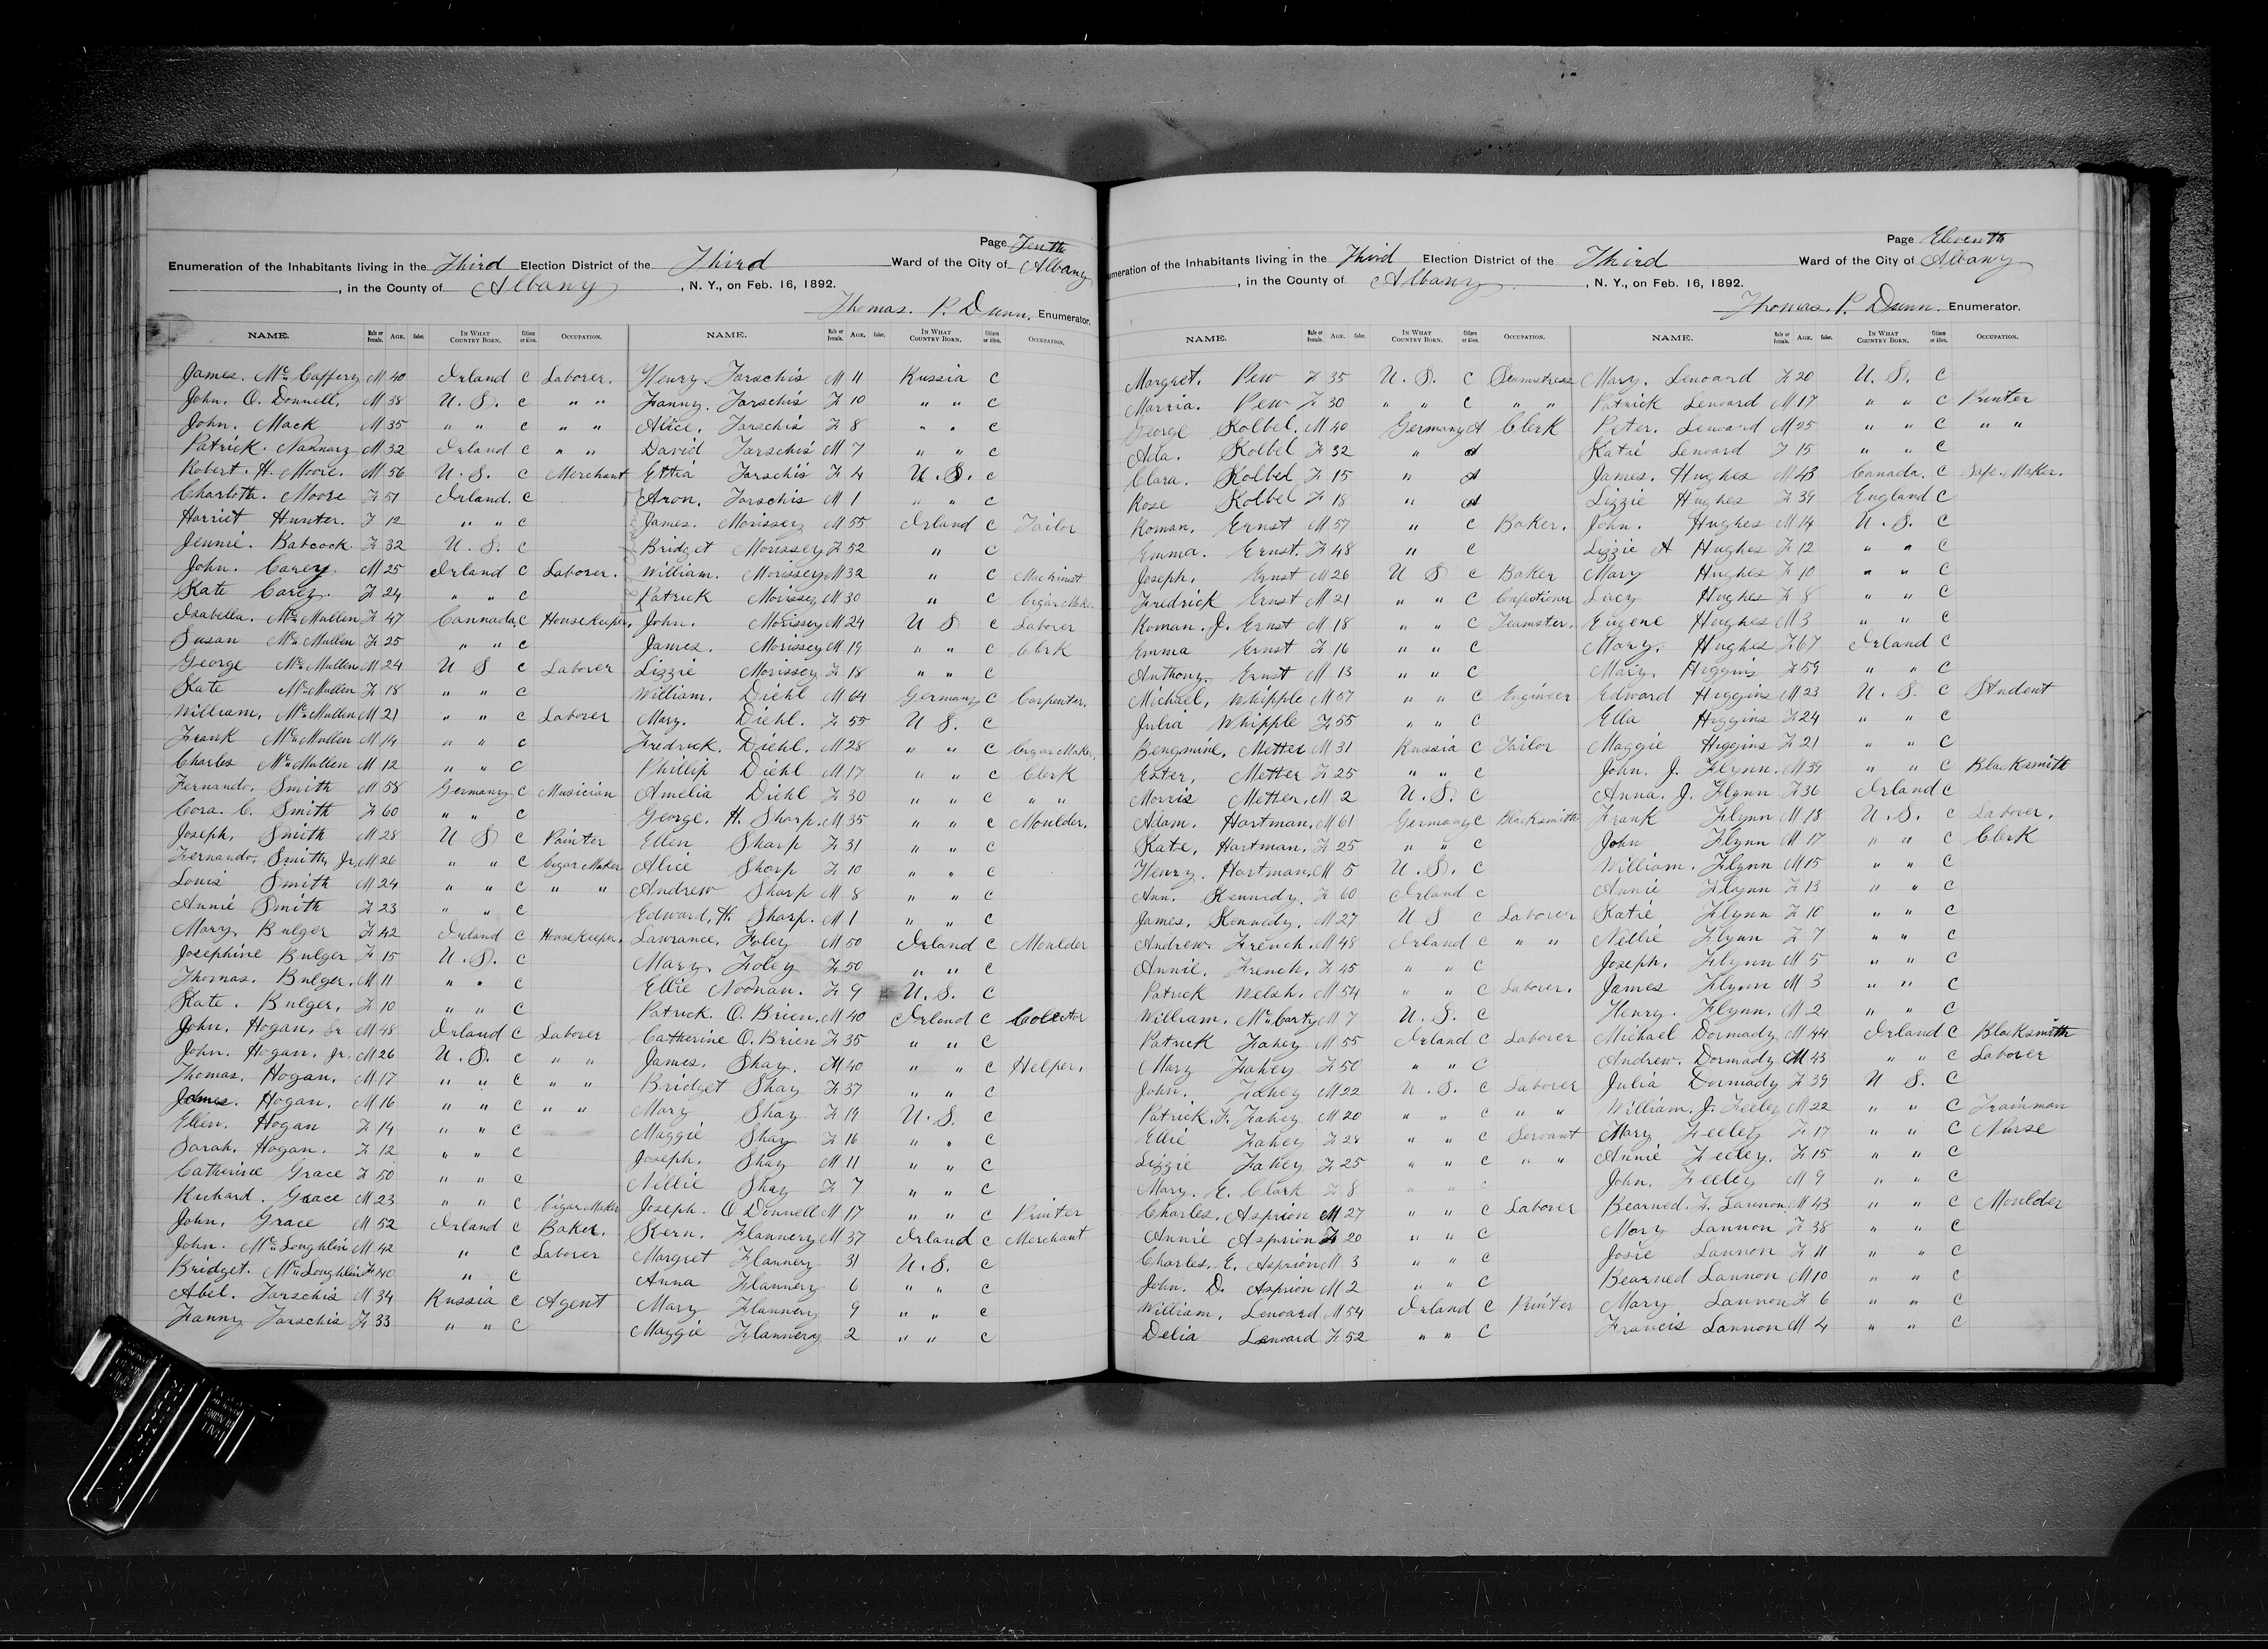 Page Tenth
Enumeration of the Inhabitants living in the Third Election District of the Third Ward of the City of Albany
, in the County of Albany , N. Y., on Feb. 16, 1892.
Thomas. P. Dunn, Enumerator.
NAME. Male or Female. AGE. Color. IN WHAT COUNTRY BORN. Citizen or Alien. OCCUPATION.
James. Mc Caffery M 40 Irland C Laborer.
John. O. Donnell. M 38 U. S. C " "
John. Mack M 35 " " C " "
Patrick. Nannary M 32 Irland C " "
Robert. H. Moore. M 56 U. S. C Merchant
Charlotta. Moore F 51 Irland. C
Harriet Hunter. F 12 " " C
Jennie. Babcock F 32 U. S. C
John. Carey M 25 Irland C Laborer.
Kate Carey. F 24 " " C
Isabella. Mc Mullen F 47 Cannada, C HouseKeeper.
Susan Mc Mullen F 25 " " C
George Mc Mullen M 24 U S C Laborer
Kate Mc Mullen F 18 " " C
William. Mc Mullen M 21 " " C Laborer
Frank Mc Mullen M 14 " " C
Charles Mc Mullen M 12 " " C
Fernando. Smith M 58 Germany C Musician
Cora. C. Smith F 60 " " C
Joseph. Smith M 28 U S C Painter
Fernando. Smith, Jr, M 26 " " C Cigar Maker
Louis Smith M 24 " " C " "
Annie Smith F 23 " " C
Mary. Bulger F 42 Irland C HouseKeeper.
Josephine Bulger F 15 U. S. C
Thomas. Bulger. M 11 " " C
Kate. Bulger. F 10 " " C
John. Hogan. Sr M 48 Irland C Laborer
John. Hogan. Jr. M 26 U. S. C " "
Thomas. Hogan. M 17 " " C " "
James. Hogan. M 16 " " C " "
Ellen. Hogan F 14 " " C
Sarah. Hogan. F 12 " " C
Catherine Grace F 50 " " C
Richard. Grace M 23 " " C Cigar Maker
John. Grace M 52 Irland C Baker.
John. Mc Loughlin M 42 " C Laborer
Bridget. Mc Loughlin F 40 " C
Abel. Jarschis M 34 Russia C Agent
Fanny Jarschis F 33 " " C
NAME. Male or Female. AGE. Color. IN WHAT COUNTRY BORN. Citizen or Alien. OCCUPATION.
Henry. Jarschis M 11 Russia C
Fanny. Jarschis F 10 " " C
Alice. Jarschis F 8 " " C
David Jarschis M 7 " " C
Ettia Jarschis F 4 U. S. C
Aron. Jarschis M 1 " " C
James. Morissey M 55 Irland C Tailor
Bridget Morissey F 52 " C
William. Morissey M 32 " C Machinst
Patrick Morissey M 30 " C Cigar Maker
John. Morissey M 24 U S C Laborer
James. Morissey M 19 " " C Clerk
Lizzie Morissey F 18 " " C
William. Diehl M 64 Germany C Carpenter.
Mary. Diehl. F 55 U S. C
Fredrick. Diehl. M 28 " " C Cigar Maker,
Phillip Diehl M 17 " " C Clerk
Amelia Diehl F 30 " " C " "
George. H. Sharp. M 35 " " C Moulder.
Ellen Sharp F 31 " " C
Alice Sharp F 10 " " C
Andrew Sharp M 8 " " C
Edward. H. Sharp. M 1 " " C
Lawrance. Foley M 50 Irland C Moulder
Mary. Foley F 50 " " C
Ellie Noonan. F 9 U. S. C
Patrick. O. Brien. M 40 Irland C Colector
Catherine O. Brien F 35 " " C
James. Shay. M 40 " " C Helper.
Bridget Shay F 37 " " C
Mary Shay F 19 U. S. C
Maggie Shay F 16 " " C
Joseph. Shay M 11 " " C
Nellie Shay F 7 " " C
Joseph. O Donnell M 17 " " C Printer
Kern. Flannery M 37 Irland C Merchant
Margret Flannery 31 U. S. C
Anna Flannery 6 " " C
Mary Flannery 9 " " C
Maggie Flannery 2 " " C
Page Eleventh
umeration of the Inhabitants living in the Third Election District of the Third Ward of the City of Albany
, in the County of Albany , N. Y., on Feb. 16, 1892.
Thomas. P. Dunn. Enumerator.
NAME. Male or Female. AGE. Color. IN WHAT COUNTRY BORN. Citizen or Alien. OCCUPATION.
Margret. Pew F 35 U. S. C Seamstress
Marria. Pew F 30 " " C " "
George Kolbel. M 40 Germany A Clerk
Ada. Kolbel F 32 " A
Clara. Kolbel F 15 " A
Rose Kolbel F 18 " A
Roman. Ernst M 57 " C Baker.
Emma. Ernst. F 48 " C
Joseph. Ernst M 26 U S C Baker
Fredrick Ernst M 21 " " C Confectioner
Roman. J. Ernst M 18 " " C Teamster.
Emma Ernst F 16 " " C
Anthony. Ernst M 13 " " C
Michael. Whipple M 57 " " C Engineer
Julia Whipple F 55 " " C
Bengmine. Metter M 31 Russia C Tailor
Ester. Metter F 25 " " C
Morris Metter. M 2 U. S. C
Adam. Hartman. M 61 Germany C Blacksmith
Kate. Hartman. F 25 " " C
Henry. Hartman. M 5 U. S. C
Ann. Kennedy. F 60 Irland C
James. Kennedy. M 27 U S C Laborer
Andrew. French. M 48 Irland C " "
Annie. French. F 45 " " C
Patrick Welsh. M 54 " " C Laborer.
William. Mc Carty M 7 U. S. C
Patrick Fahey M 55 Irland C Laborer
Mary Fahey F 50 " " C
John. Fahey M 22 U. S. C Laborer
Patrick. F. Fahey M 20 " " C " "
Ellie Fahey F 28 " " C Servant
Lizzie Fahey F 25 " " C " "
Mary. E. Clark F 8 " " C
Charles. Asprion M 27 " " C Laborer
Annie Asprion F 20 " " C
Charles. E. Asprion M 3 " " C
John. D. Asprion M 2 " " C
William. Lenoard M 54 Irland C Printer
Delia Lenoard F 52 " " C
NAME. Male or Female. AGE. Color. IN WHAT COUNTRY BORN. Citizen or Alien. OCCUPATION.
Mary. Lenoard F 20 U. S. C
Patrick Lenoard M 17 " " C Printer
Peter. Lenoard M 25 " " C " "
Katie Lenoard F 15 " " C
James. Hughes M 43 Canada. C Safe. Maker.
Lizzie Hughes F 39 England C
John. Hughes M 14 U. S. C
Lizzie A Hughes F 12 " " C
Mary Hughes F 10 " " C
Lucy Hughes F 8 " " C
Eugene Hughes M 3 " " C
Mary. Hughes F 67 Irland C
Mary. Higgins F 59 " " C
Edward Higgins M 23 U. S. C Student
Ella Higgins F 24 " " C
Maggie Higgins F 21 " " C
John. J. Flynn. M 39 " " C Blacksmith
Anna. J. Flynn F 36 Irland C
Frank Flynn M 18 U. S. C Laborer.
John Flynn M 17 " " C Clerk
William. Flynn M 15 " " C
Annie Flynn F 13 " " C
Katie Flynn F 10 " " C
Nellie Flynn F 7 " " C
Joseph. Flynn M 5 " " C
James Flynn M 3 " " C
Henry. Flynn. M 2 " " C
Michael Dormady M 44 Irland C Blacksmith
Andrew. Dormady M 43 " " C Laborer
Julia Dormady F 39 U S. C
William. J. Feeley M 22 " " C Trainman
Mary Feeley F 17 " " C Nurse
Annie Feeley. F 15 " " C
John. Feeley M 9 " " C
Bearned. F. Lannon M 43 " " C Moulder
Mary Lannon F 38 " " C
Josie Lannon F 11 " " C
Bearned Lannon M 10 " " C
Mary Lannon F 6 " " C
Francis Lannon M 4 " " C